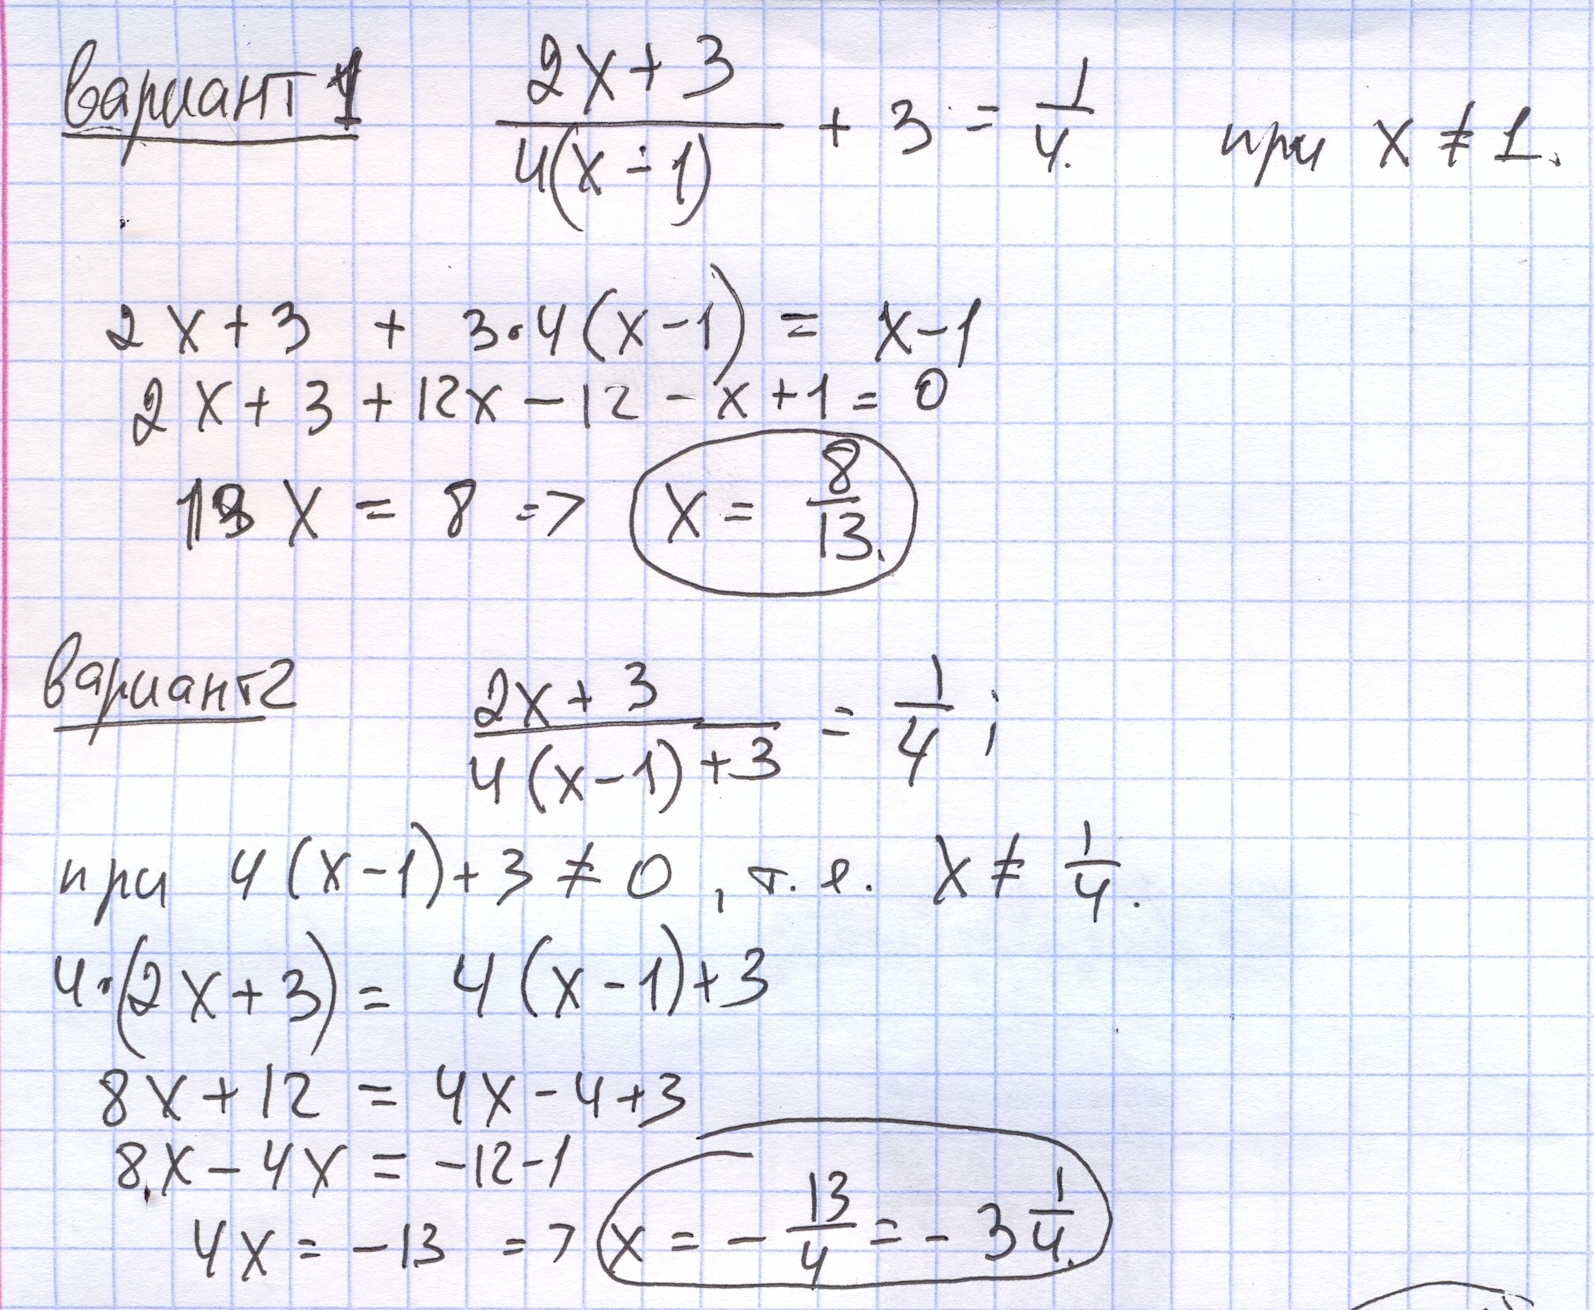 вариант 1 (2x+3)/(4(x-1)) + 3 = 1/4. при x ≠ 1.
2x+3 + 3·4(x-1) = x-1
2x+3+12x-12-x+1=0
13x = 8 => x = 8/13.
вариант2 (2x+3)/(4(x-1)+3) = 1/4 ;
при 4(x-1)+3≠0, т.е. x ≠ 1/4.
4·(2x+3) = 4(x-1)+3
8x+12 = 4x-4+3
8x-4x = -12-1
4x = -13 => x = -13/4 = -3 1/4.